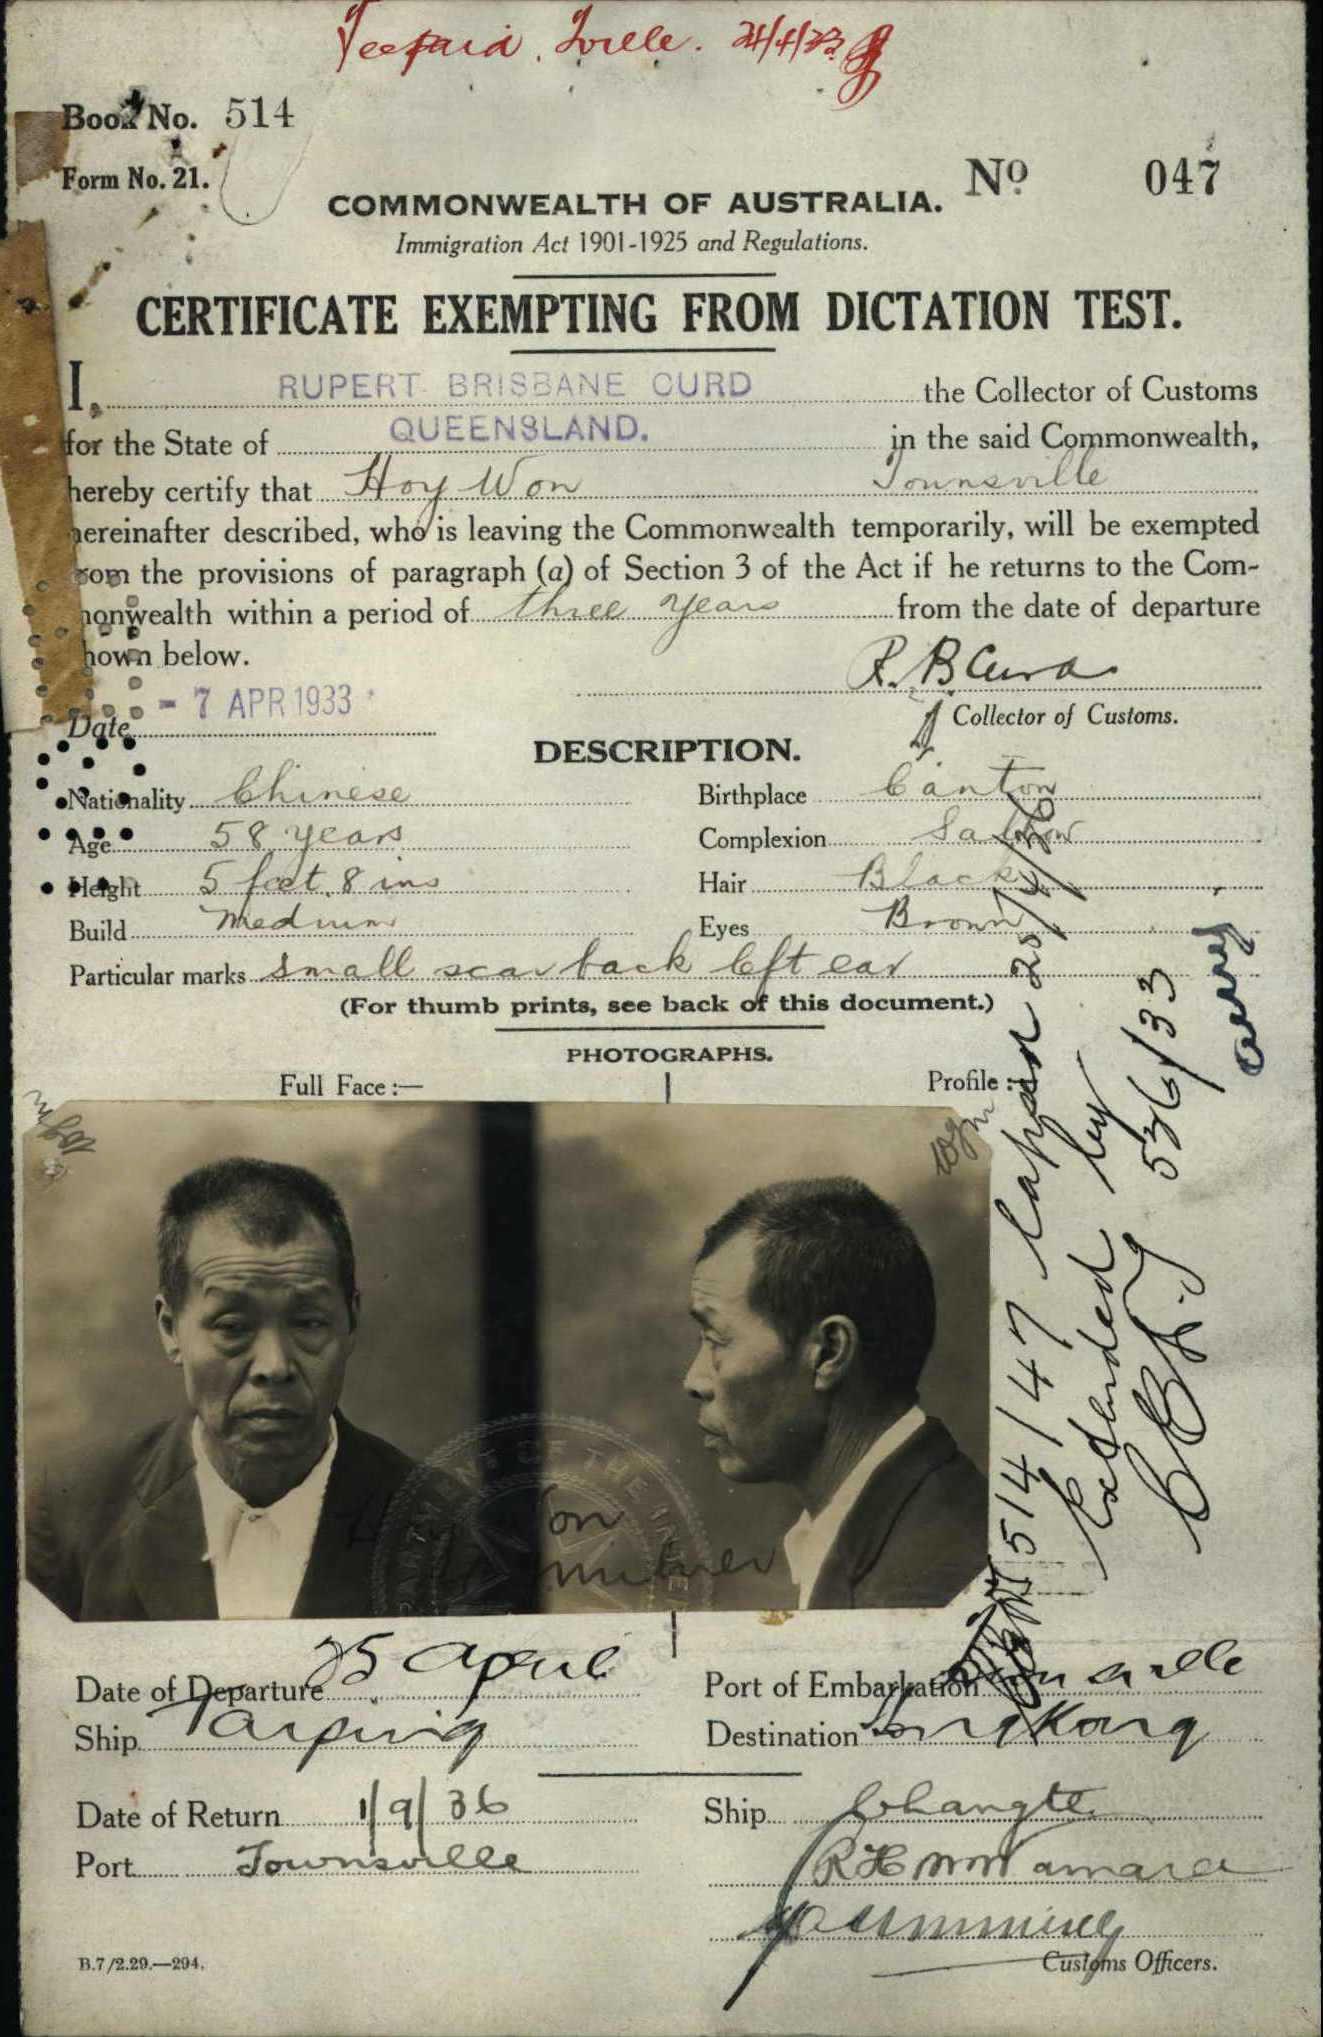 Feepaid. Tville. 24/4/33
Book No. 514
Form No. 21.
No. 047
COMMONWEALTH OF AUSTRALIA.
Immigration Act 1901-1925 and Regulations.
CERTIFICATE EXEMPTING FROM DICTATION TEST.
I, RUPERT BRISBANE CURD the Collector of Customs
for the State of QUEENSLAND. in the said Commonwealth,
hereby certify that Hoy Won Townsville
hereinafter described, who is leaving the Commonwealth temporarily, will be exempted
from the provisions of paragraph (a) of Section 3 of the Act if he returns to the Com-
monwealth within a period of three years from the date of departure
shown below.
R. B Curd
Date - 7 APR 1933
Collector of Customs.
DESCRIPTION.
Nationality Chinese Birthplace Canton
Age 58 years Complexion Sallow
Height 5 feet 8 ins Hair Black
Build Medium Eyes Brown
Particular marks small scar back left ear
(For thumb prints, see back of this document.)
PHOTOGRAPHS.
Full Face :— Profile :—
514/47 lapsed 25/4/36
Extended by
536/33
Hoy Won
Milner
DEPARTMENT OF THE INTE
Date of Departure 25 April Port of Embarkation Townsville
Ship Taiping Destination Hong Kong
Date of Return 1/9/36 Ship Changte
Port Townsville R H McNamara
Cummings
Customs Officers.
B.7/2.29.—294.